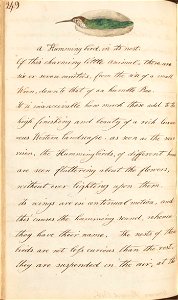 249
a Humming bird, in its nest.
Of this charming little animal, there are
six or seven varieties, from the size of a small
Wren, down to that of an humble Bee.
It is inconceivable how much these add to the
high finishing and beauty of a rich luxur-
ious Western landscape. as soon as the sun
rises, the Humming birds, of different kinds
are seen fluttering about the flowers,
without ever lighting upon them.
its wings are in continual motion, and
this causes the humming sound, whence
they have their name. The nests of these
birds are not less curious than the rest.
they are suspended in the air, at the